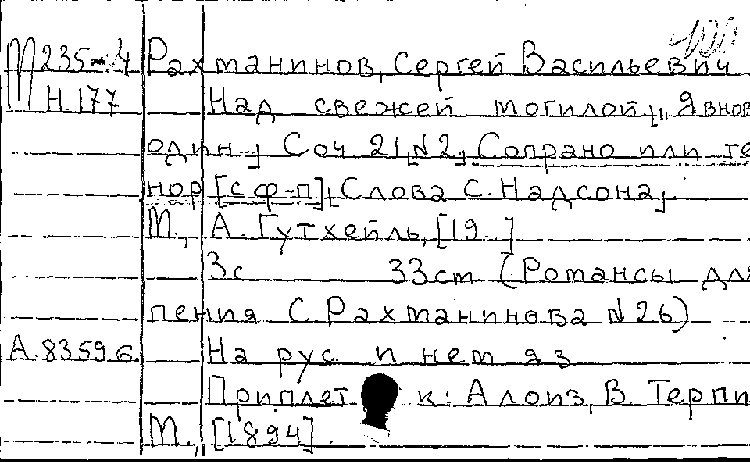 М235-4 Рахманинов, Сергей Васильевич
Н.177 Над свежей могилой, „Явнов
один„ Соч 21, №2, Сопрано или те
нор [с ф-п], Слова С. Надсона,
М., А. Гутхейль, [19..]
3с 33см (Романсы для
пения С. Рахманинова №26)
А.8359б. На рус и нем яз
Приплет к: Алоиз, В. Терпи
М., [1894].